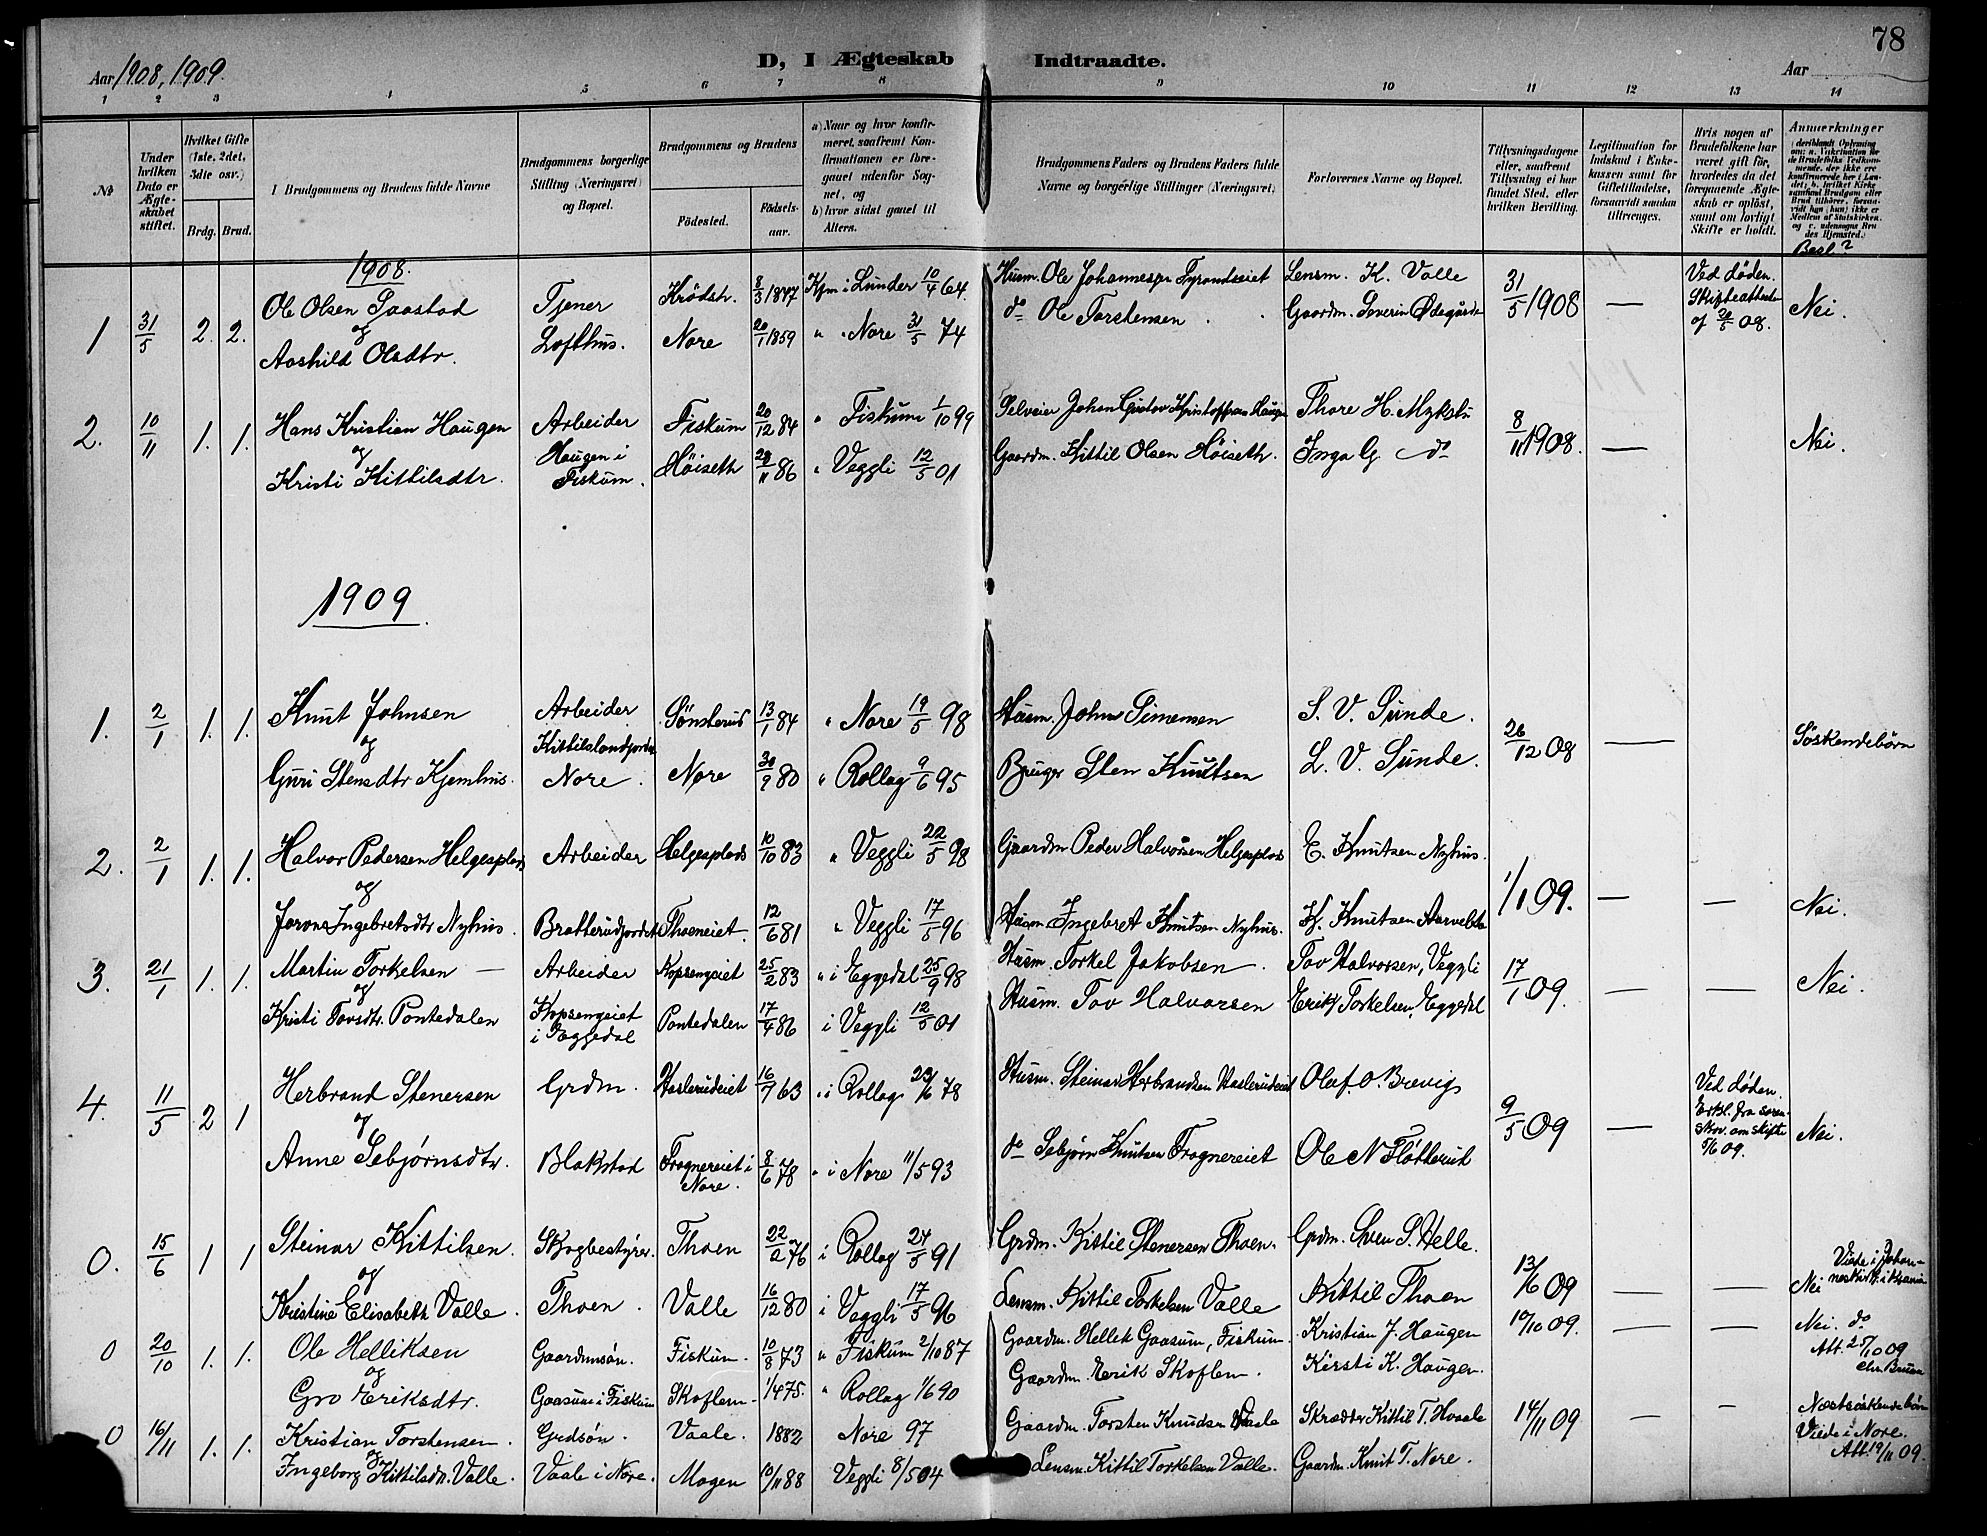 78
Aar 1908, 1909.
D, I Ægteskab Indtraadte.
Aar
1 2 3 4 5 6 7 8 9 10 11 12 13 14
No
Under hvilken Dato er Ægteskabet stiftet.
Hvilket Gifte (1ste, 2det, 3die osv.)
Brdg. Brud.
I Brudgommens og Brudens fulde Navne
Brudgommens borgerlige Stilling (Næringsvei) og Bopæl.
Brudgommens og Brudens
Fødested.
Fødselsaar.
a) Naar og hvor konfirmeret, saafremt Konfirmationen er foregaaet udenfor Sognet, og
b) hvor sidst gaaet til Alters.
Brudgommens Faders og Brudens Faders fulde Navne og borgerlige Stillinger (Næringsvei)
Forlovernes Navne og Bopæl.
Tillysningsdagene eller, saafremt Tillysning ei har fundet Sted, efter hvilken Bevilling.
Legitimation for Indskud i Enkekassen samt for Giftetilladelse, forsaavidt saadan tiltrænges.
Hvis nogen af Brudefolkene har været gift før, hvorledes da det foregaaende Ægteskab er opløst, samt om lovligt Skifte er holdt.
Anmærkninger
Besl?
1908.
1 31/5 2. 2. Ole Olsen Saastad Tjener Krødsh. 8/3 1847 Kfm i Lunder 10/4 64. Husm. Ole Johannesen Tyrandseiet Lensm. K. Valle 31/5 1908 — Ved døden. Nei.
og
Aashild Olsdtr. Lofthus. Nore 20/1 1859 " " Nore 31/5 74 do Ole Torstensen Gaardm. Severin Ødegården Skifteattest af 20/5 08.
2. 10/11 1. 1. Hans Kristian Haugen Arbeider Fiskum 20/12 84 " Fiskum 1/10 99 Selveier Johan Gustav Kristoffersen Haugen Thore H. Mykstu 8/11 1908. — Nei.
og Haugen i
Kristi Kittilsdtr. Fiskum. Høiseth 28/11 86 " Veggli 12/5 01 Gaardm. Kittil Olsen Høiseth. Inga G do
1909.
1. 2/1 1. 1. Knut Johnsen Arbeider Sønsterud 13/1 84 " Nore 19/5 98 Husm. John Simensen S. V. Sunde. 26/12 08 — Søskendebørn
og Kittilslandjordet
Guri Stensdtr Kjemhus. Nore. Nore 30/9 80 " Rollag 9/6 95 Bruger Sten Knutsen L. V. Sunde.
2. 2/1 1. 1. Halvor Pedersen Helgesplads Arbeider Helgesplads 10/10 83 " Veggli 22/5 98 Gaardm Peder Halvorsen Helgesplads E. Knutsen Nyhus. 1/1 09. — — Nei.
og
Jorans Ingebretsdtr Nyhus. Bratterudjordet Thoeneiet. 12/6 81 " Veggli 17/5 96 Husm Ingebret Knutsen Nyhus. K. Knutsen Aarvelta
3. 21/1 1. 1. Martin Torkelsen — Arbeider Kopsengeiet 25/2 83 " i Eggedal 25/9 98 Husm. Torkel Jakobsen — . Tov Halvorsen, Veggli 17/1 09. — — Nei.
og Kopsengeiet
Kristi Tovsdtr. Pontedalen i Eggedal Pontedalen 17/4 86 i Veggli 12/5 01 Husm. Tov Halvorsen Erik Torkelsen, Eggedal
4. 11/5 2 1 Herbrand Stenersen Grdm. Haslerudeiet 16/9 63 " i Rollag 23/6 78 Husm. Steinar Herbrandsen Haslerudeiet Olaf O. Brævig 9/5 09 — Ved døden. Erkl. fra soren- skov. om skifte 5/6 09. Nei.
og
Anne Sebjørnsdtr. Blakstad Frognereiet i Nore. 8/6 78 " i Nore 11/5 93 do Sebjørn Knutsen Frognereiet Ole N Fløtterud
0. 15/6 1 1 Steinar Kittilsen. Skogbestyrer. Thoen 22/2 76 i Rollag 24/5 91 Grdm. Kittil Stenersen Thoen. Grdm. Sven S. Helle. 13/6 09 — — Nei Viede i Johanneskirk. i Krania
og
Kristine Elisabeth Valle. Thoen. Valle 16/12 80 i Veggli 17/5 96 Lensm. Kittil Torkelsen Valle Kittil Thoen
0 20/10 1. 1. Ole Helliksen Gaardmsøn. Fiskum. 10/8 73 " Fiskum 2/10 87 Gaardm. Hellek Gaasum, Fiskum. Kristian J. Haugen 10/10 09. — — Nei. do
og Att. 25/10 09
Gro Eriksdtr. Gaasum i Fiskum Skoflem. 1/4 75. " Rollag 1/6 90 Gaardm. Erik Skoflem. Kirsti K. Haugen. Chr. Bruun
0 16/11 1. 1. Kristian Torstensen. Grdsøn. Vaale. 1882 Nore 97 Gaardm. Torsten Knudsen Vaale Skrædder Kittil T. Hvaale 14/11 09 — — Næstsøskendebørn
og Viede i Nore.
Ingeborg Kittilsdtr. Valle. Vaale i Nore. Mogen 10/11 88 Veggli 8/5 04 Lensm. Kittil Torkelsen Valle. Gaardm. Knut T. Nore. Att. 19/11 09.